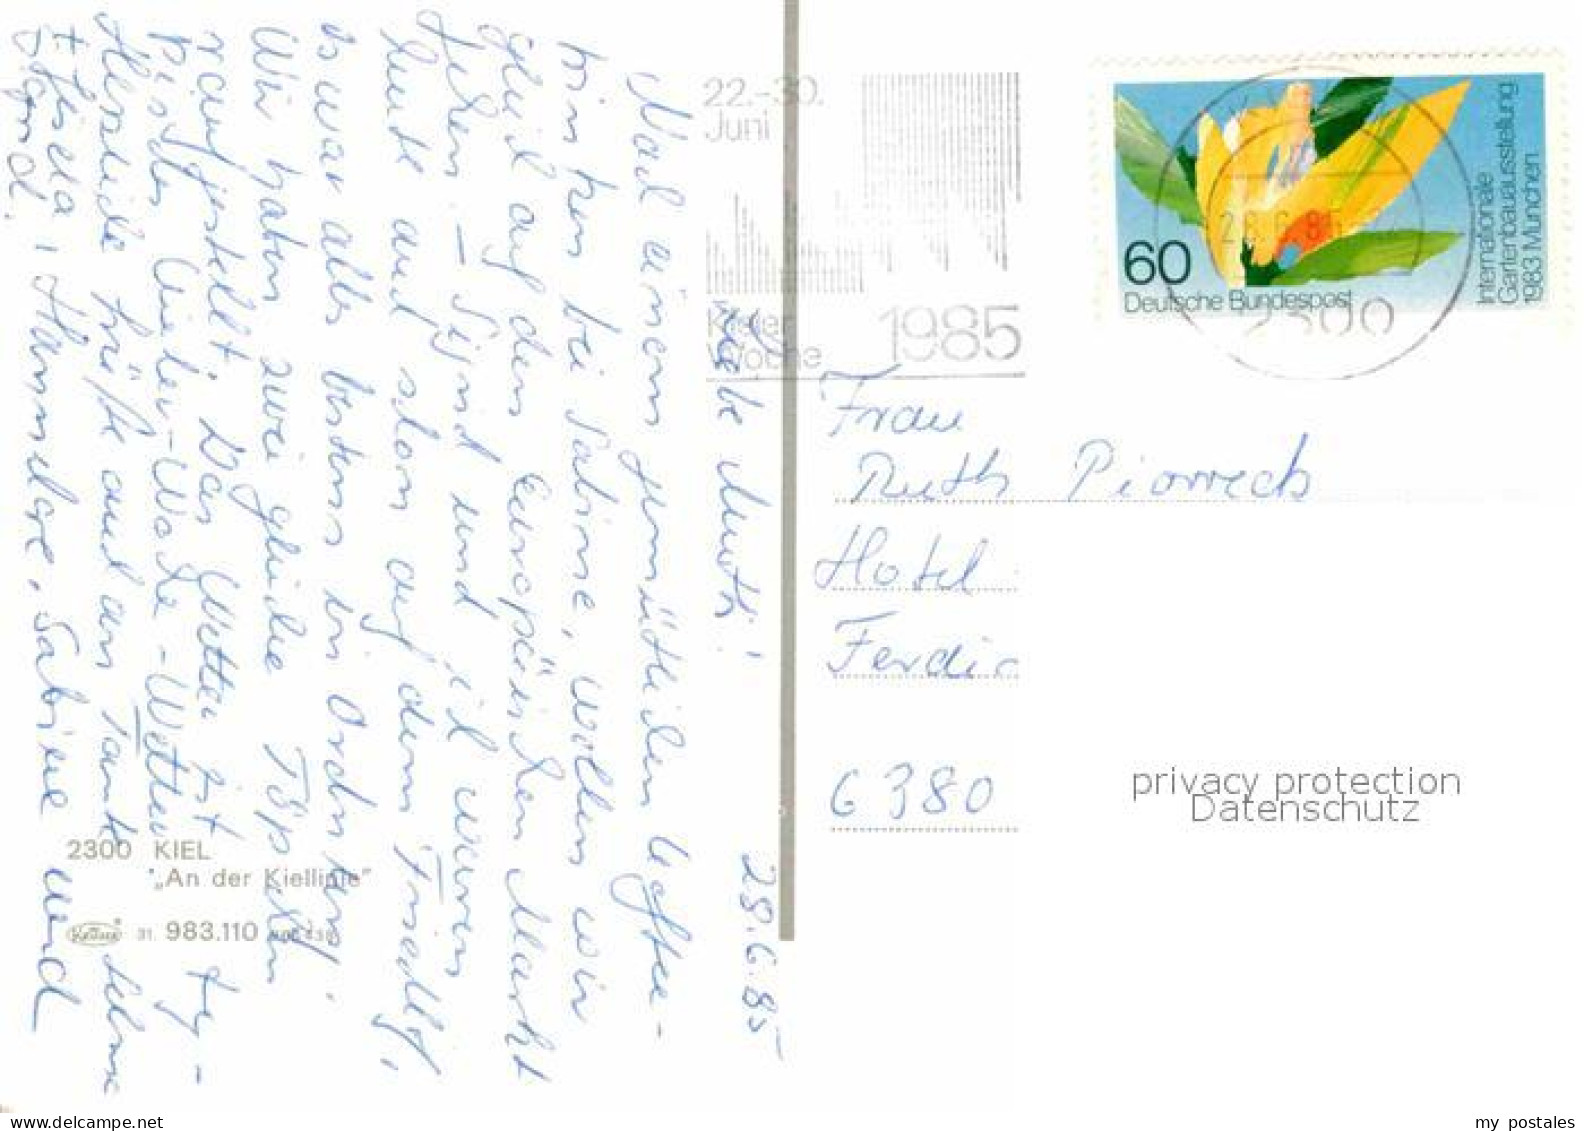 28.6.85
Liebe Mutti!
Nach einem gemütlichen Kaffee-
trinken bei Sabine, wollen wir
gleich auf den Europäischen Markt
gehen. – Sigrid und ich waren
heute auch schon auf dem Friedhof,
es war alles bestens in Ordnung.
Wir haben zwei gleiche Töpfe
raufgestellt. Das Wetter ist ty-
pisches Kieler-Woche-Wetter
Herzliche Grüße auch an Tante
Hannelore, Sabine und
Sigrid.
22.-30.
Juni
Kieler
Woche 1985
60
Deutsche Bundespost
Internationale
Gartenbauausstellung
1983 München
26.6.85
2300
Frau
Ruth
Hotel
Ferdin
6380
privacy protection
Datenschutz
2300 KIEL
"An der Kiellinie"
Krüger 31. 983.110
my postales
www.delcampe.net